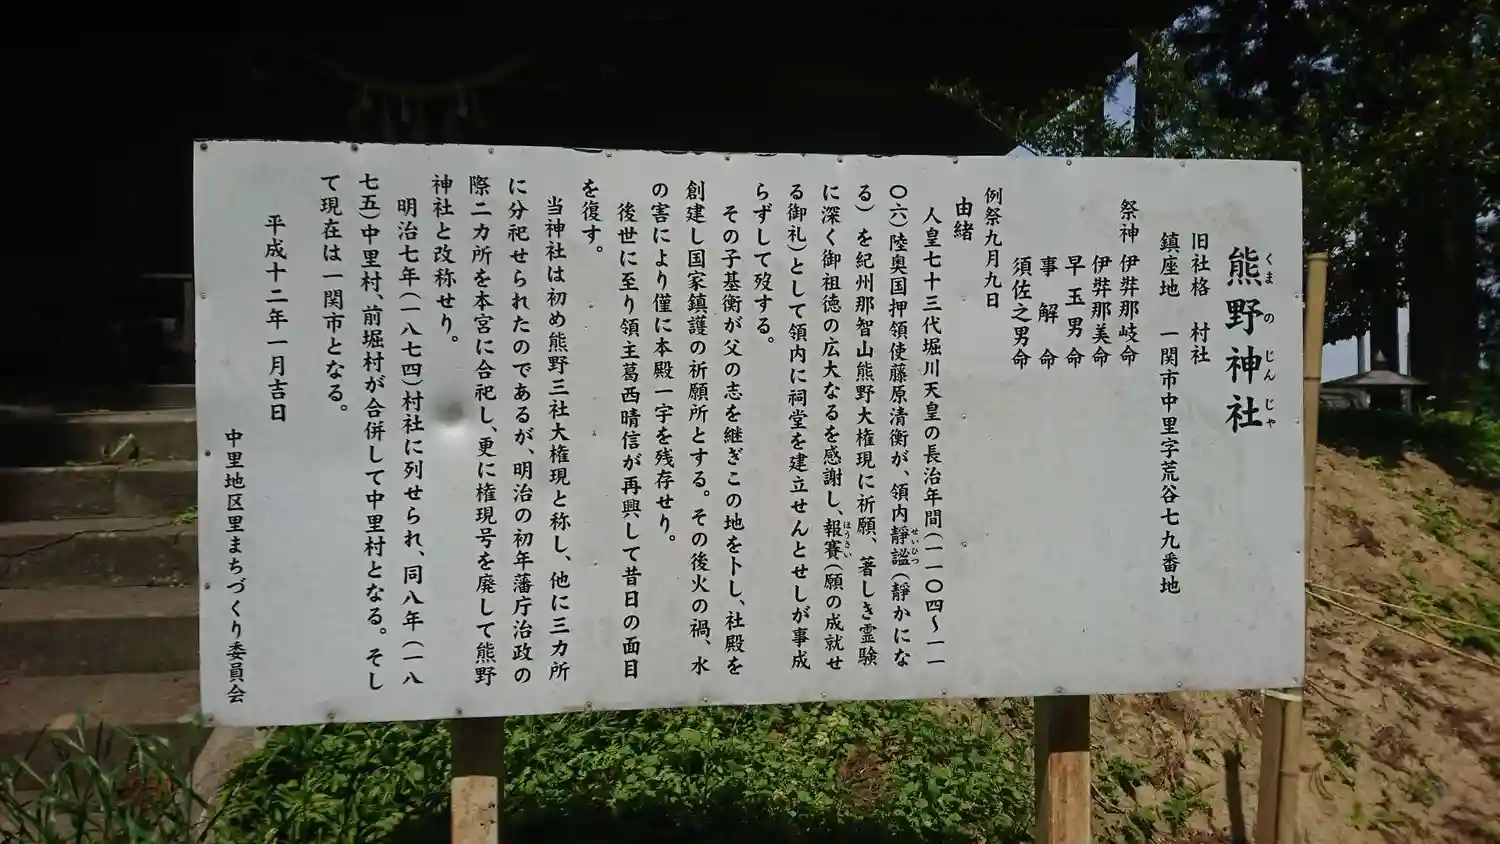 熊野神社
くまのじんじゃ
旧社格 村社
鎮座地 一関市中里字荒谷七九番地
祭神 伊弉那岐命
伊弉那美命
早玉男命
事解命
須佐之男命
例祭九月九日
由緒
人皇七十三代堀川天皇の長治年間(一一〇四〜一一
〇六)陸奥国押領使藤原清衡が、領内靜謐(静かにな
せいひつ
る)を紀州那智山熊野大権現に祈願、著しき霊験
に深く御祖徳の広大なるを感謝し、報賽(願の成就せ
ほうさい
る御礼)として領内に祠堂を建立せんとせしが事成
らずして歿する。
その子基衡が父の志を継ぎこの地を卜し、社殿を
創建し国家鎮護の祈願所とする。その後火の禍、水
の害により僅に本殿一宇を残存せり。
後世に至り領主葛西晴信が再興して昔日の面目
を復す。
当神社は初め熊野三社大権現と称し、他に三カ所
に分祀せられたのであるが、明治の初年藩庁治政の
際二カ所を本宮に合祀し、更に権現号を廃して熊野
神社と改称せり。
明治七年(一八七四)村社に列せられ、同八年(一八
七五)中里村、前堀村が合併して中里村となる。そし
て現在は一関市となる。
平成十二年一月吉日
中里地区里まちづくり委員会